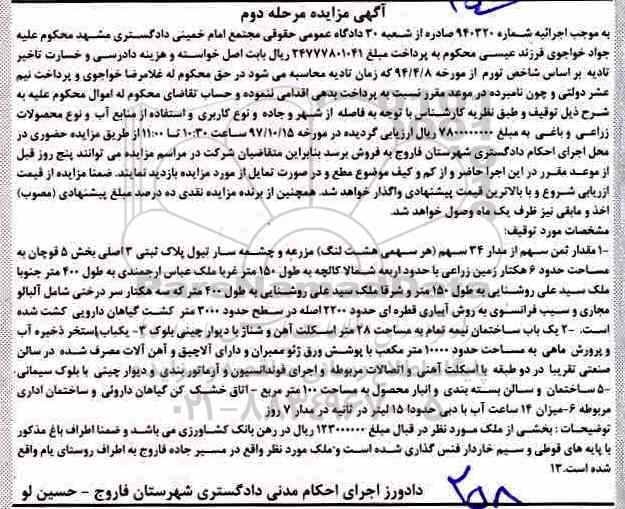 آگهی مزایده مرحله دوم
به موجب اجرائیه شماره ۹۴۰۳۲۰ صادره از شعبه ۳۰ دادگاه عمومی حقوقی مجتمع امام خمینی دادگستری مشهد محکوم علیه
جواد خواجوی فرزند عیسی محکوم به پرداخت مبلغ ۳۴۷۷۷۸۰۱۰۴۱ ریال بابت اصل خواسته و هزینه دادرسی و خسارت تاخیر
تادیه بر اساس شاخص تورم از مورخه ۹۴/۴/۸ که زمان تادیه محاسبه می شود در حق محکوم له غلامرضا خواجوی و پرداخت نیم
عشر دولتی و چون نامبرده در موعد مقرر نسبت به پرداخت بدهی اقدامی ننموده و حساب تقاضای محکوم له اموال محکوم علیه به
شرح ذیل توقیف و طبق نظریه کارشناس با توجه به فاصله از شهر و جاده و نوع کاربری و استفاده از منابع آب و نوع محصولات
زراعی و باغی به مبلغ ۷۸۰۰۰۰۰۰۰۰ ریال ارزیابی گردیده در مورخه ۹۷/۱۰/۱۵ ساعت ۱۰:۳۰ تا ۱۱:۰۰ از طریق مزایده حضوری در
محل اجرای احکام دادگستری شهرستان فاروج به فروش برسد بنابراین متقاضیان شرکت در مراسم مزایده می توانند پنج روز قبل
از موعد مقرر در این اجرا حاضر و از کم و کیف موضوع مطع و در صورت تمایل از مورد مزایده بازدید نمایند. ضمنا مزایده از قیمت
ازریابی شروع و با بالاترین قیمت پیشنهادی واگذار خواهد شد. همچنین از برنده مزایده نقدی ده درصد مبلغ پیشنهادی (مصوب)
اخذ و مابقی نیز ظرف یک ماه وصول خواهد شد.
مشخصات مورد توقیف:
۱- مقدار ثمن سهم از مدار ۳۴ سهم (هر سهمی هشت لنگ) مزرعه و چشمه سار تیول پلاک ثبتی ۳ اصلی بخش ۵ قوچان به
مساحت حدود ۶ هکتار زمین زراعی با حدود اربعه شمالا کالچه به طول ۱۵۰ متر غربا ملک عباس ارجمندی به طول ۴۰۰ متر جنوبا
ملک سید علی روشنایی به طول ۱۵۰ متر و شرقا ملک سید علی روشنایی به طول ۴۰۰ متر که سه هکتار سر درختی شامل آلبالو
مجاری و سیب فرانسوی به روش آبیاری قطره ای حدود ۲۲۰۰ اصله در سطح حدود ۳۰۰۰ متر کشت گیاهان دارویی کشت شده
است. ۲- یک باب ساختمان نیمه تمام به مساحت ۲۸ متر اسکلت آهن و شناژ با دیوار چینی بلوک ۳- یکباب استخر ذخیره آب
و پرورش ماهی به مساحت حدود ۱۰۰۰۰ متر مکعب با پوشش ورق ژئو ممبران و دارای آلاچیق و آهن آلات مصرف شده در سالن
صنعتی تقریبا در دو طبقه با اسکلت آهنی و اتصالات مربوطه و اجرای فوندانسیون و آرماتور بندی و دیوار چینی با بلوک سیمانی.
۵- ساختمان و سالن بسته بندی و انبار محصول به مساحت ۱۰۰ متر مربع - اتاق خشک کن گیاهان داروئی و ساختمان اداری
مربوطه ۶- میزان ۱۴ ساعت آب با دبی حدودا ۱۵ لیتر در ثانیه در مدار ۷ روز
توضیحات : بخشی از ملک مورد نظر در قبال مبلغ ۱۲۳۰۰۰۰۰۰ ریال در رهن بانک کشاورزی می باشد و ضمنا اطراف باغ مذکور
با پایه های قوطی و سیم خاردار فنس گذاری شده است و ملک مورد نظر واقع در مسیر جاده فاروج به اطراف روستای یام واقع
شده است.۱۳
دادورز اجرای احکام مدنی دادگستری شهرستان فاروج - حسین لو
۲۵۸